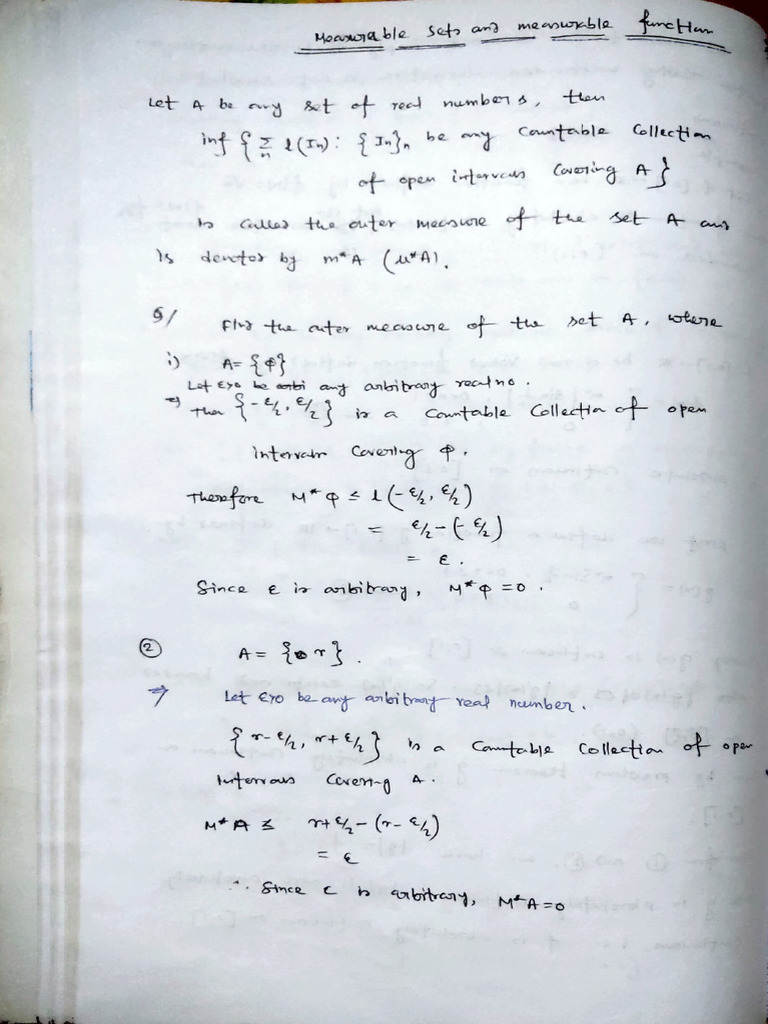 Measurable sets and measurable function
Let A be any set of real numbers, then
inf { Σn l(In) : {In}n be any countable collection
of open intervals covering A }
is called the outer measure of the set A and
is denoted by m*A (μ*A).
Q/ Find the outer measure of the set A, where
i) A = {φ}
Let ε>0 be any arbitrary real no.
⇒ Then {-ε/2, ε/2} is a countable collection of open
intervals covering φ.
Therefore M*φ ≤ l(-ε/2, ε/2)
= ε/2 - (-ε/2)
= ε.
Since ε is arbitrary, M*φ = 0.
② A = {r}.
⇒ Let ε>0 be any arbitrary real number.
{r-ε/2, r+ε/2} is a countable collection of open
intervals covering A.
M*A ≤ r+ε/2 - (r-ε/2)
= ε
∴ Since ε is arbitrary, M*A = 0